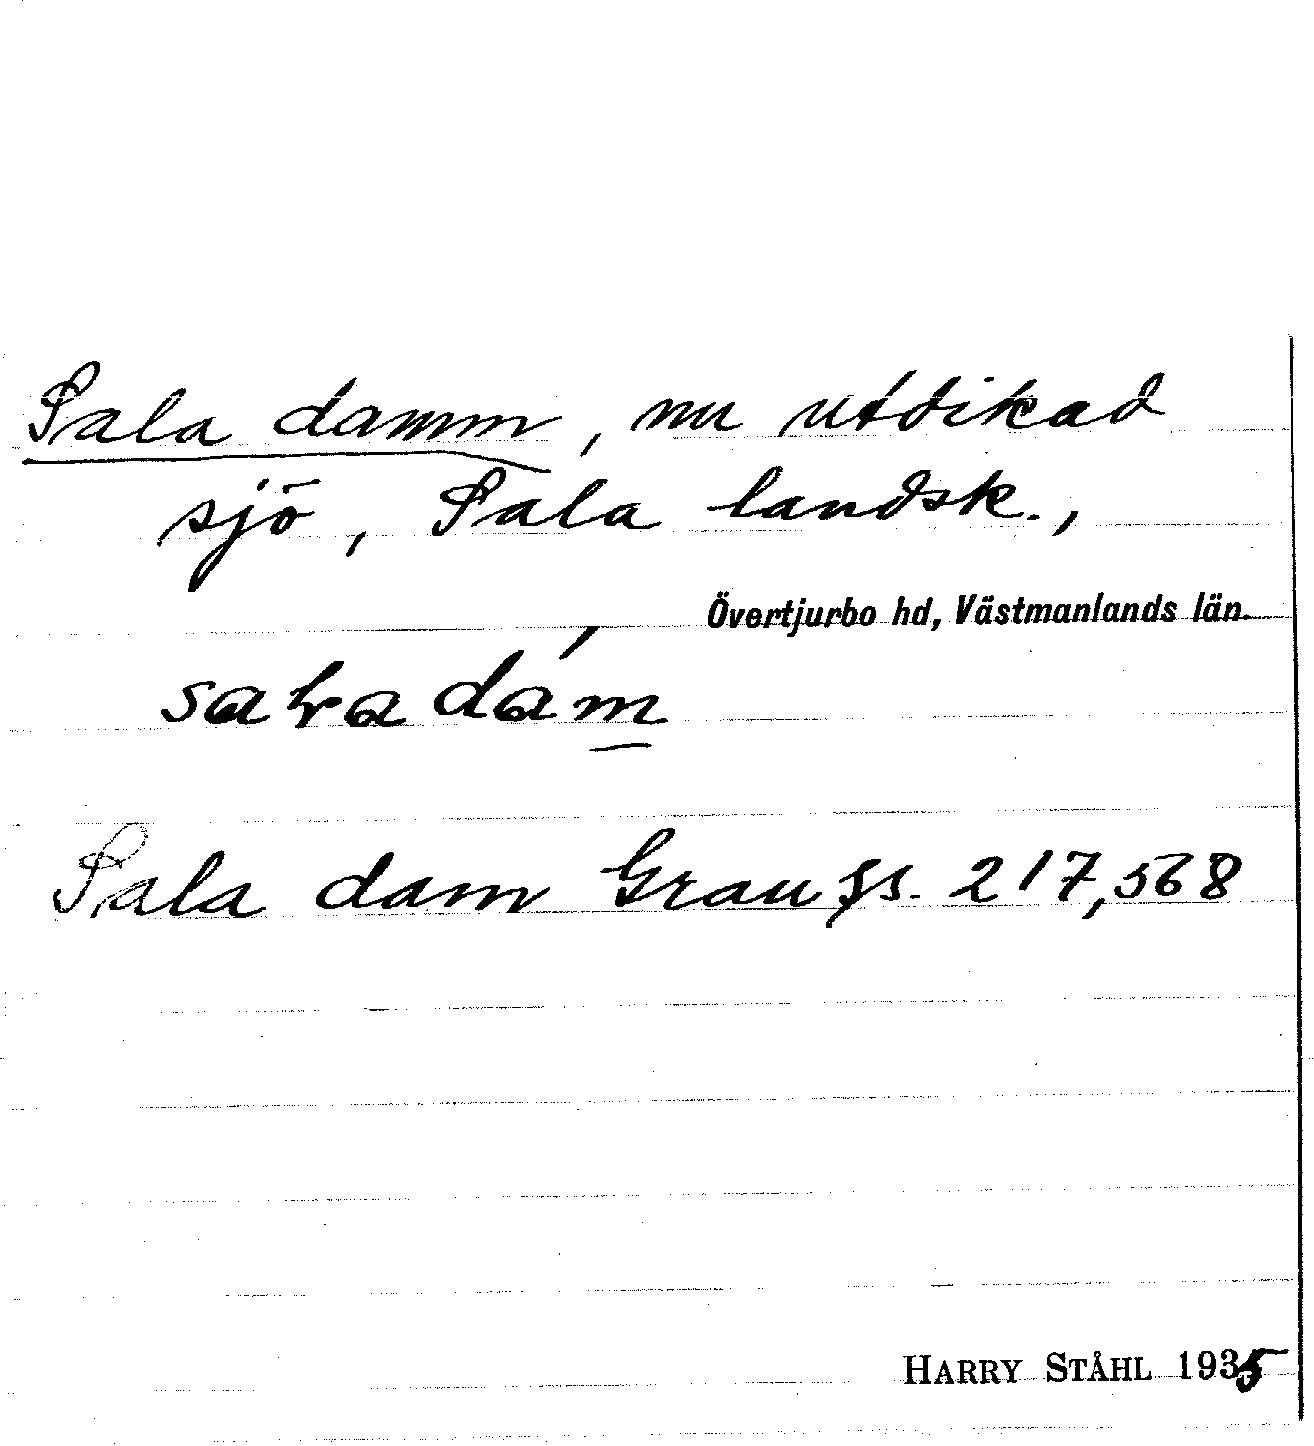 Sala damm, nu utdikad
sjö, Sala landsk.,
Övertjurbo hd, Västmanlands län.
Sala dam Grau 217,568
HARRY STÅHL 1935